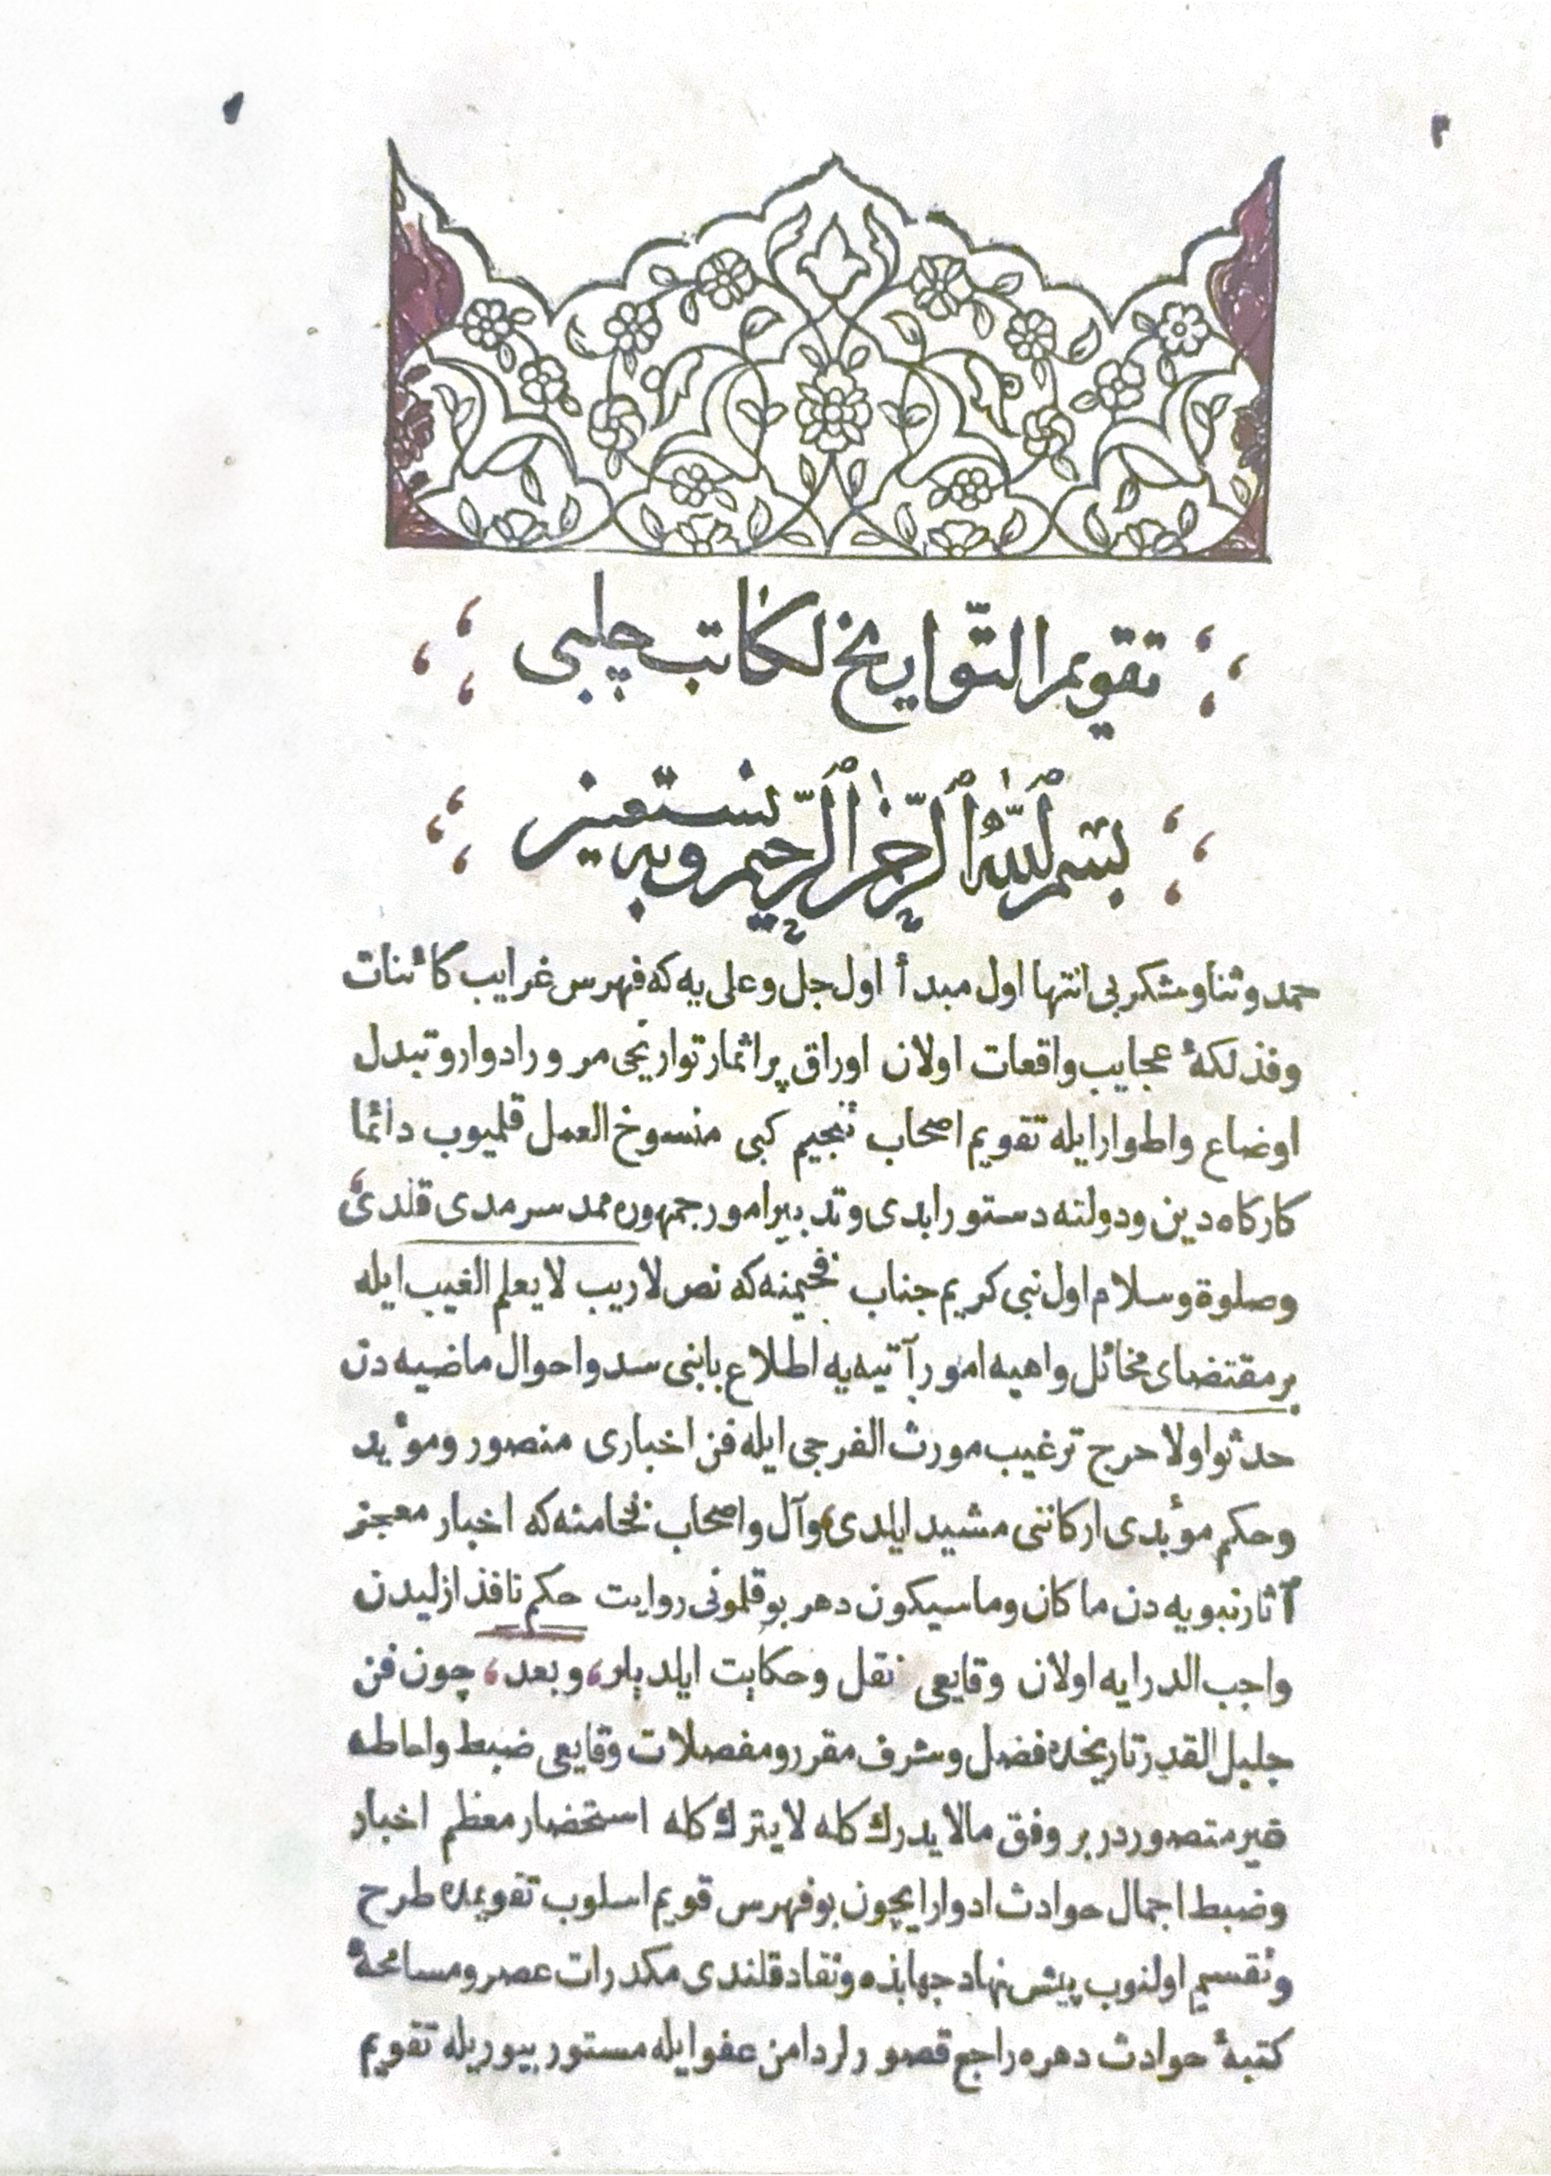 تقويم التّواريخ لكاتب چلبى
بسم ٱللّٰه ٱلرّحمٰن ٱلرّحيم وبه نستعين
حمد وثنا وشكر بى انتها اول مبدأ اول جل وعلى يه كه فهرس غرايب كائنات
وفذلكۀ عجايب واقعات اولان اوراق پر اثمار تواريخى مرور ادوار وتبدل
اوضاع واطوار ايله تقويم اصحاب تنجيم كبى منسوخ العمل قلميوب دائما
كاركاه دين ودولته دستور ابدى وتدبير امور جمهوره ممد سرمدى قلدى
وصلوة وسلام اول نبى كريم جناب فخيمنه كه نص لاريب لا يعلم الغيب ايله
بر مقتضاى مخائل واهيه امور آتيه يه اطلاع بابنى سد واحوال ماضيه دن
حدثوا ولا حرج ترغيب مورث الفرجى ايله فن اخبارى منصور ومؤيد
وحكم مؤبدى اركاننى مشيد ايلدى، وآل واصحاب فخامنه كه اخبار معجز
آثار نبويه دن ما كان وما سيكون دهر بوقلمونى روايت حكم نافذ ازليدن
واجب الدرايه اولان وقايعى نقل وحكايت ايلديلر، وبعد، چون فن
جليل القدر تاريخده فضل وشرف مقرر ومفصلات وقايعى ضبط واحاطه
غير متصور در بر وفق مالا يدرك كله لا يترك كله استحضار معظم اخبار
وضبط اجمال حوادث ادوار ايچون بو فهرس قويم اسلوب تقويمده طرح
وتقسيم اولنوب پيش نهاد جهابذه ونقاد قلندى مكدرات عصر ومسامحۀ
كتبۀ حوادث دهره راجع قصورلر دامن عفو ايله مستور بيوريله تقويم